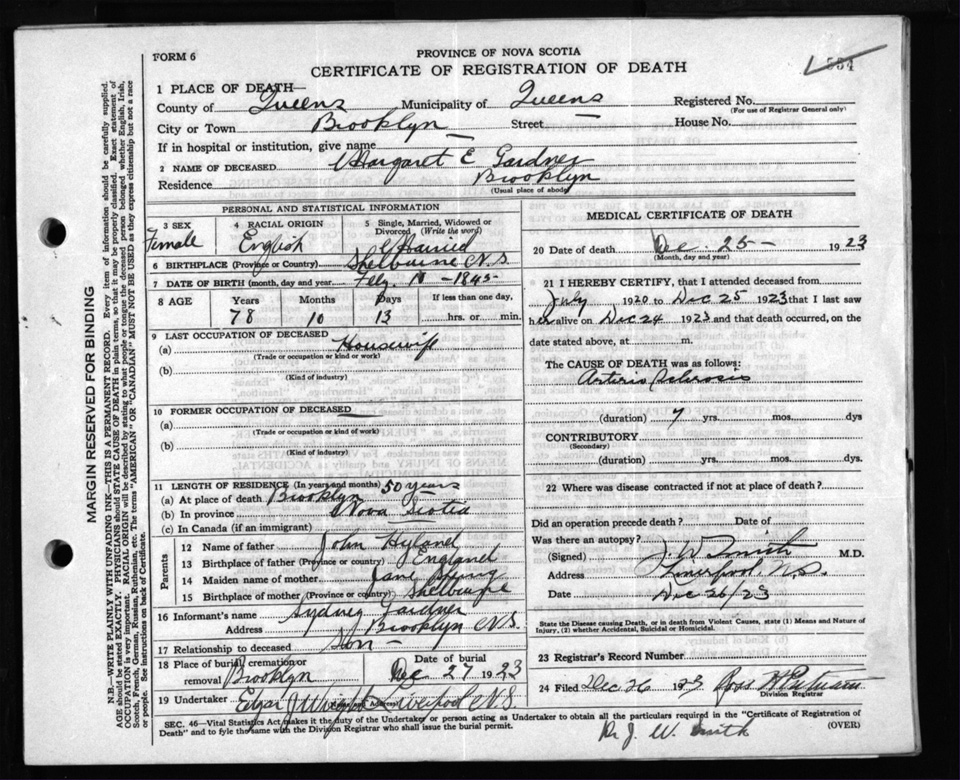 FORM 6
PROVINCE OF NOVA SCOTIA
CERTIFICATE OF REGISTRATION OF DEATH
554
1 PLACE OF DEATH—
County of Queens Municipality of Queens Registered No.
(For use of Registrar General only)
City or Town Brooklyn Street House No.
If in hospital or institution, give name
2 NAME OF DECEASED Margaret E Gardner
Residence Brooklyn
(Usual place of abode)
PERSONAL AND STATISTICAL INFORMATION
3 SEX Female
4 RACIAL ORIGIN English
5 Single, Married, Widowed or Divorced (Write the word) Married
6 BIRTHPLACE (Province or Country) Shelburne N.S.
7 DATE OF BIRTH (month, day and year 1845
8 AGE Years Months Days If less than one day,
78 10 13 hrs. or min.
9 LAST OCCUPATION OF DECEASED
(a) Housewife
(Trade or occupation or kind or work)
(b)
(Kind of industry)
10 FORMER OCCUPATION OF DECEASED
(a)
(Trade or occupation or kind of work)
(b)
(Kind of industry)
11 LENGTH OF RESIDENCE (In years and months) 50 years
(a) At place of death Brooklyn
(b) In province Nova Scotia
(c) In Canada (if an immigrant)
Parents
12 Name of father John Hyland
13 Birthplace of father (Province or country) England
14 Maiden name of mother Jane
15 Birthplace of mother (Province or country) Shelburne
16 Informant's name Sydney Gardner
Address Brooklyn N.S.
17 Relationship to deceased Son
18 Place of burial, cremation or removal Brooklyn
Date of burial Dec 27 1923
19 Undertaker Edgar J Wright Liverpool N.S.
MEDICAL CERTIFICATE OF DEATH
20 Date of death Dec. 25 — 1923
(Month, day and year)
21 I HEREBY CERTIFY, that I attended deceased from
July 1920 to Dec 25 1923 that I last saw
her alive on Dec 24 1923 and that death occurred, on the
date stated above, at m.
The CAUSE OF DEATH was as follows:
Arterio Sclerosis
(duration) 7 yrs. mos. dys
CONTRIBUTORY
(Secondary)
(duration) yrs. mos. dys.
22 Where was disease contracted if not at place of death?
Did an operation precede death? Date of
Was there an autopsy?
(Signed) J. W. Smith M.D.
Address Liverpool, N.S.
Date Dec 26/23
State the Disease causing Death, or in death from Violent Causes, state (1) Means and Nature of Injury, (2) whether Accidental, Suicidal or Homicidal.
23 Registrar's Record Number
24 Filed Dec 26 1923
Division Registrar
SEC. 46—Vital Statistics Act makes it the duty of the Undertaker or person acting as Undertaker to obtain all the particulars required in the "Certificate of Registration of
Death" and to fyle the same with the Division Registrar who shall issue the burial permit. (OVER)
Dr J. W. Smith
MARGIN RESERVED FOR BINDING
N.B.—WRITE PLAINLY WITH UNFADING INK—THIS IS A PERMANENT RECORD. Every item of information should be carefully supplied.
AGE should be stated EXACTLY. PHYSICIANS should STATE CAUSE OF DEATH in plain terms, so that it may be properly classified. Exact statement of
OCCUPATION is very important. RACIAL ORIGIN will be described by stating to what people or tongue the deceased person belonged whether English, Irish,
Scotch, French, German, Russian, Ruthenian, etc. The terms "AMERICAN" OR "CANADIAN" MUST NOT BE USED as they express citizenship but not a race
or people. See instructions on back of Certificate.